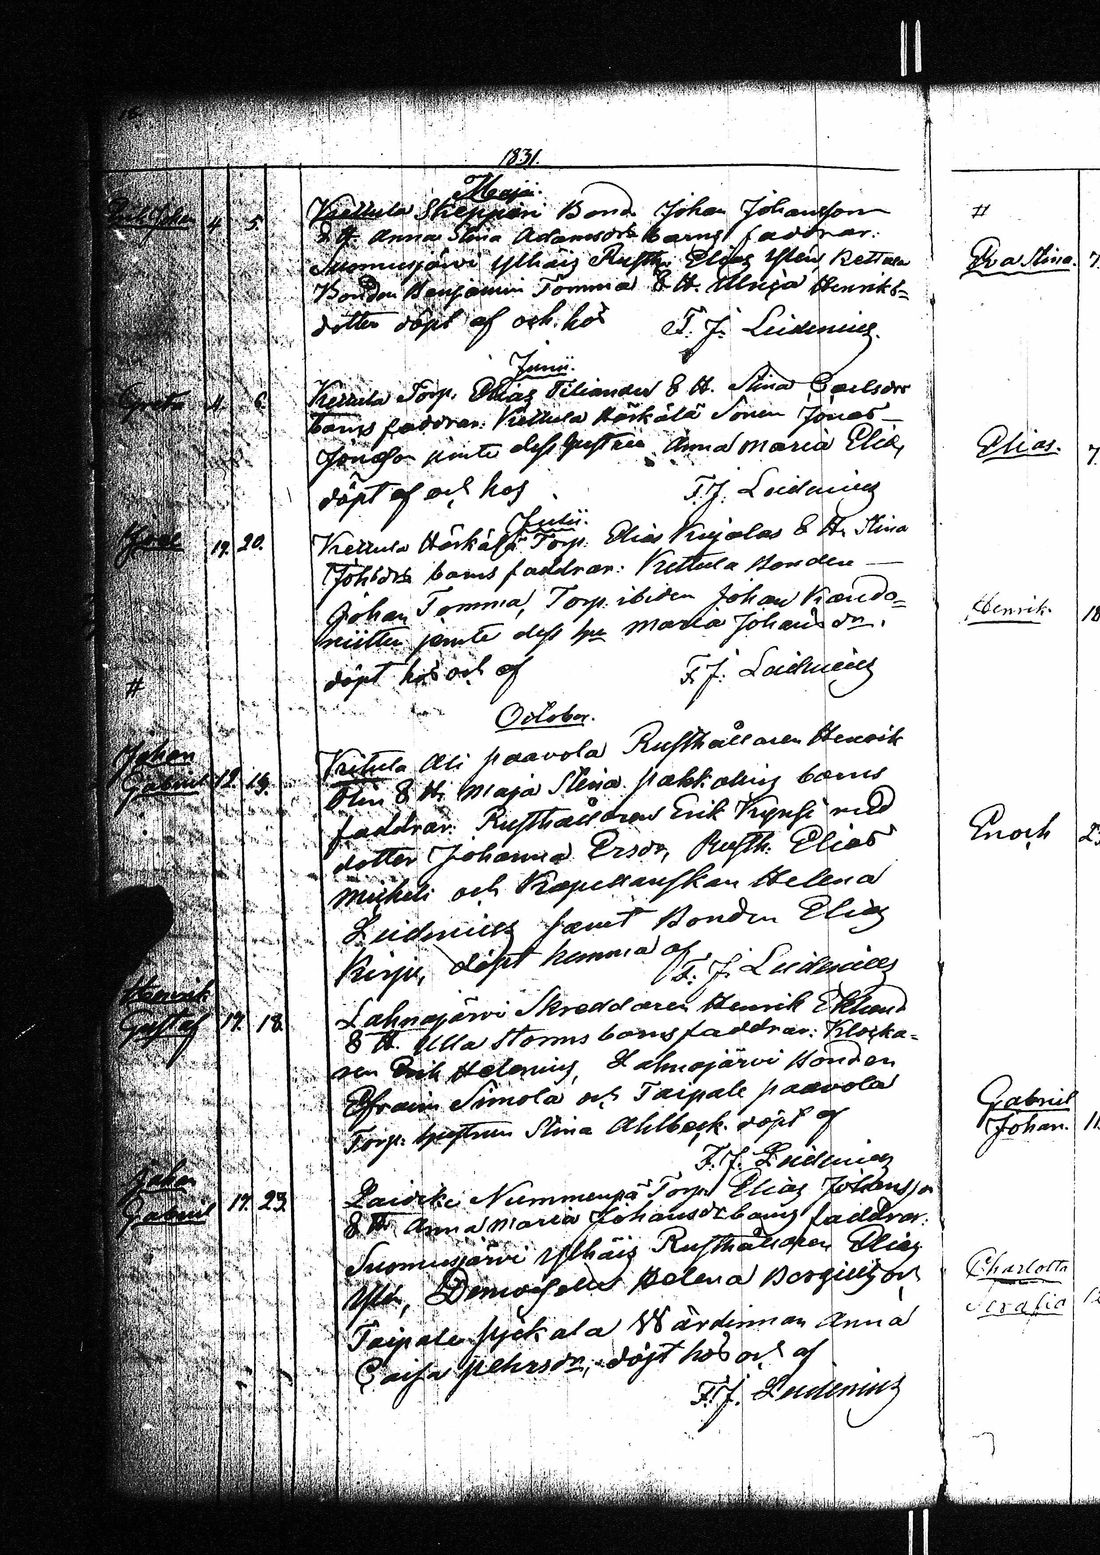 16.
1831.
Maji.
Erik Johan 4. 5. Kettula Skeppari Bond. Johan Johansson
& H. Anna Stina Adamsdr barns faddrar:
Suomusjärvi Ylhäis Rusth. Elias Ylén Kettula
Bonden Benjamin Tomma & H. Ulrica Henriks=
dotter döpt af och hos F. J. Leidenius.
Junii.
Greta 4. 6. Kettula Torp. Elias Tiliander & H. Stina Carlsdr
barns faddrar: Kettula Härkälä Sonen Jonas
Jonasson jemte dess hustru Anna Maria Elia,
döpt af och hos F. J. Leidenius
Julii.
19. 20. Kettula Härkälä Torp. Elias Kujalas & H. Stina
Johsdr barns faddrar: Kettula Bonden
Johan Tomma, Torp. ibidem Johan Kando=
niittu jemte dess hu Maria Johansdr.
döpt hos och af F. J. Leidenius
#
October.
Johan
Gabriel 12. 19. Kettula Ali paavola Rusthållaren Henrik
& H. Maja Stina barns
faddrar: Rusthållaren Erik med
dotter Johanna Ersdr, Rusth. Elias
Mickeli och Kapellanskan Helena
Leidenius samt Bonden Elias
döpt hemma af F. J. Leidenius
Henrik
Gustaf 17. 18. Lahnajärvi Skreddaren Henrik Eklund
& H. Ulla Storms barns faddrar: Klocka=
ren Erik Helenius, Lahnajärvi Bonden
Efraim Simola och Taipale paavola
Torp. hustrun Stina Ahlbeck. döpt af
F. J. Leidenius
Johan
Gabriel 17. 23. Laidike Nummenpä Torp. Elias Johansson
& H. Anna Maria Johansdr barns faddrar:
Suomusjärvi Ylhäis Rusthållaren Elias
Ylén, Demoiselle Helena Bergius och
Taipale Pijckala Wärdinnan Anna
Caisa Pehrsdr, döpt hos och af
F. J. Leidenius
#
Eva Stina. 7.
Elias. 7.
Henrik 18
Enoch 23
Gabriel
Johan. 11.
Charlotta
Serafia 12